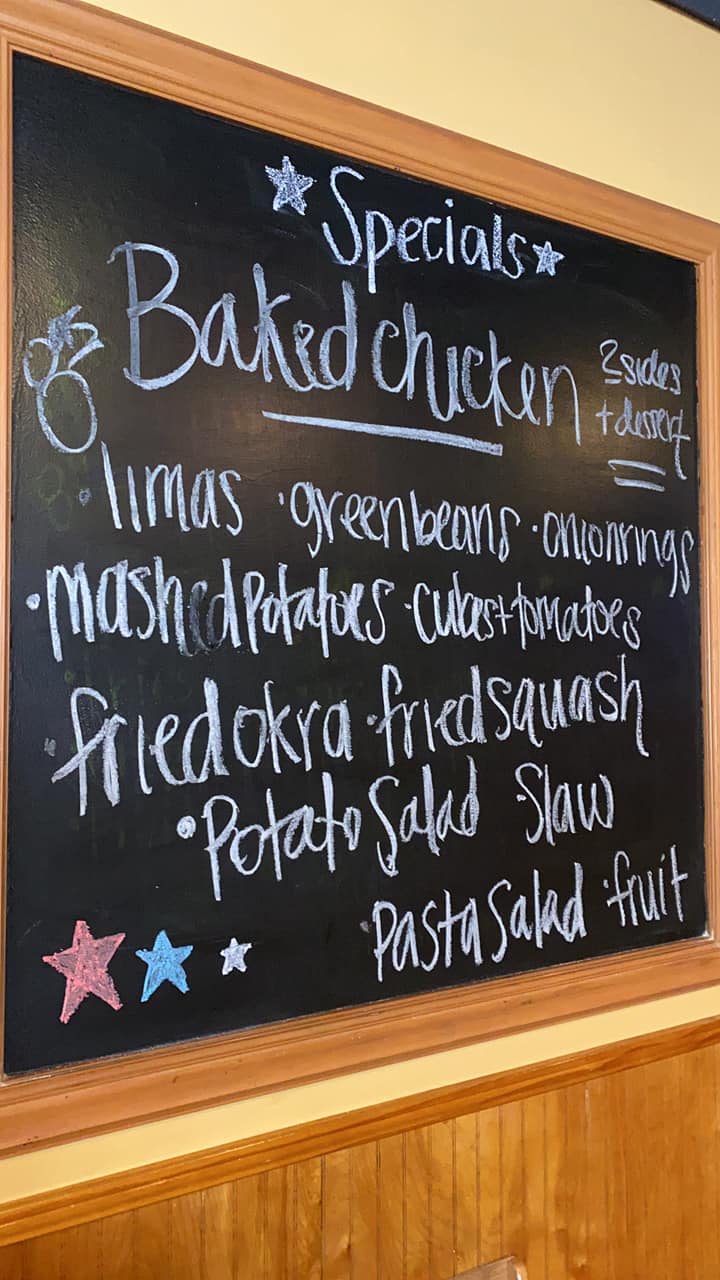 Specials
Baked chicken
2 sides
+ dessert
· limas · green beans · onion rings
· mashed potatoes · cukes + tomatoes
· fried okra · fried squash
· Potato Salad · Slaw
Pasta Salad · fruit